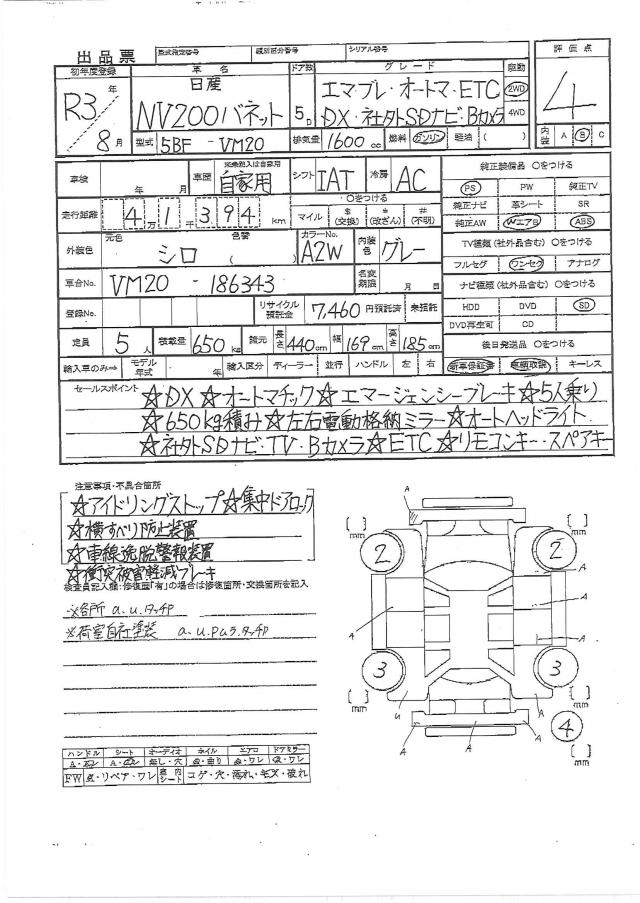 出品票 型式指定番号 類別区分番号 シリアル番号
初年度登録 車名 ドア数 グレード 駆動 評価点
R3年 8月 日産 NV200バネット 5D エマ・ブレ・オートマ・ETC DX・社外SDナビ・Bカメラ 2WD 4WD 4
型式 5BF - VM20 排気量 1600cc 燃料 ガソリン 軽油 ( ) 内装 A B C
車検 年 月 車歴 自家用 シフト IAT 冷房 AC 純正装備品 ○をつける
PS PW 純正TV
走行距離 4万1千394km ○をつける マイル $(交換) *(改ざん) #(不明) 純正ナビ 革シート SR
純正AW WエアB ABS
外装色 元色 シロ 色替 ( ) カラーNo. A2W 内装色 グレー TV種類(社外品含む) ○をつける
フルセグ ワンセグ アナログ
車台No. VM20 - 186343 名変期限 月 日 ナビ種類(社外品含む) ○をつける
登録No. リサイクル預託金 7,460円預託済 未預託 HDD DVD SD
DVD再生可 CD
定員 5人 積載量 650kg 諸元 長さ 440cm 幅 169cm 高さ 185cm 後日発送品 ○をつける
輸入車のみ⇒ モデル年式 年 輸入区分 ディーラー 並行 ハンドル 左 右 新車保証書 車輌取説 キーレス
セールスポイント ☆DX☆オートマチック☆エマージェンシーブレーキ☆5人乗り
☆650kg積み☆左右電動格納ミラー☆オートヘッドライト
☆社外SDナビ・TV・Bカメラ☆ETC☆リモコンキー・スペアキー
注意事項・不具合箇所
☆アイドリングストップ☆集中ドアロック
☆横すべり防止装置
☆車線逸脱警報装置
☆衝突被害軽減ブレーキ
検査員記入欄:修復歴「有」の場合は修復箇所・交換箇所を記入
※各所 a.u.タッチP
※荷室自社塗装 a.u.Paラ.タッチP
A
[ ] mm 2 2 [ ] mm
A A A
[ ] mm 3 3 [ ] mm
u A
A A A
4 [ ] mm
ハンドル シート オーディオ ホイル エアロ ドアミラー
FW リペア・ワレ 室内シート コゲ・穴・汚れ・キズ・破れ